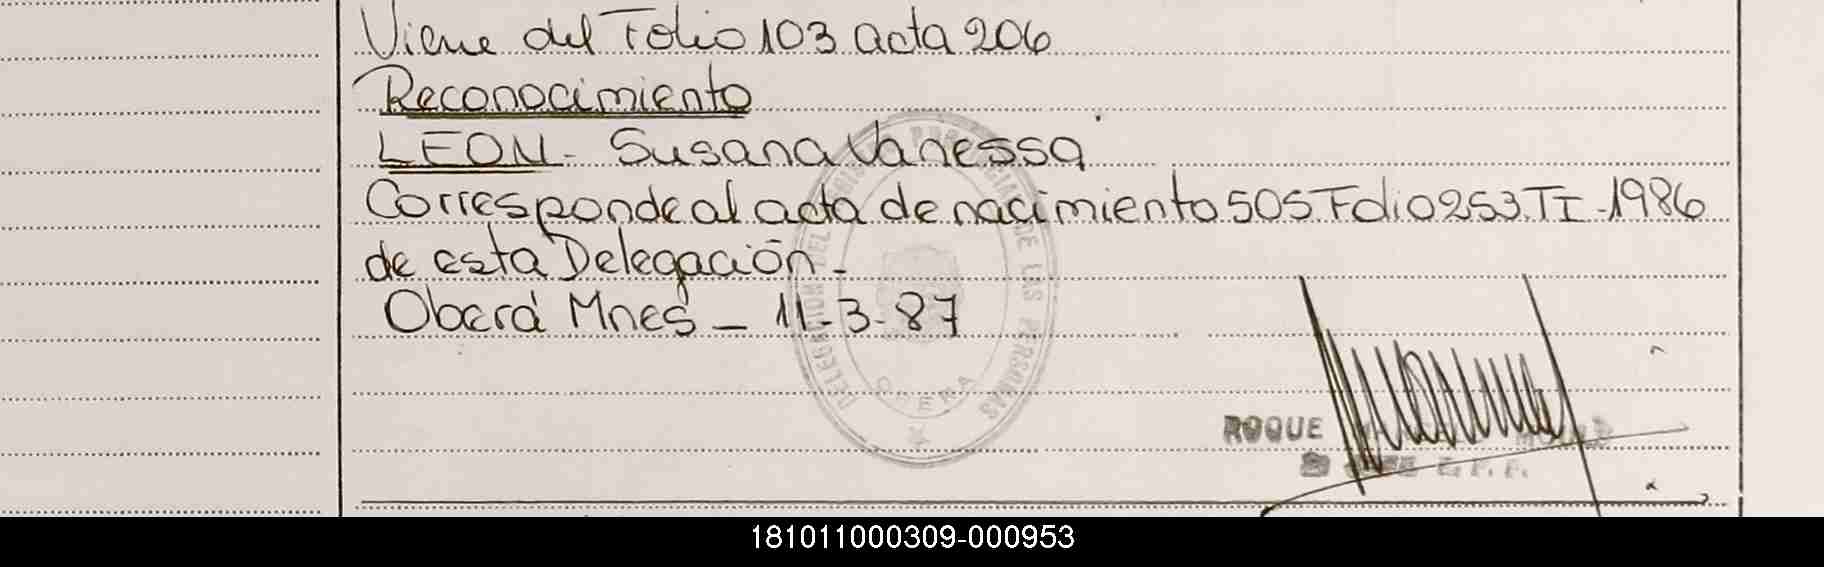 Viene del Folio 103 acta 206
Reconocimiento
LEON - Susana Vanessa
Corresponde al acta de nacimiento 505. Folio 253. TI - 1986
de esta Delegación -
Oberá Mnes - 11-3-87
DELEGACION DEL REGISTRO PROVINCIAL DE LAS PERSONAS
OBERA
ROQUE
181011000309-000953